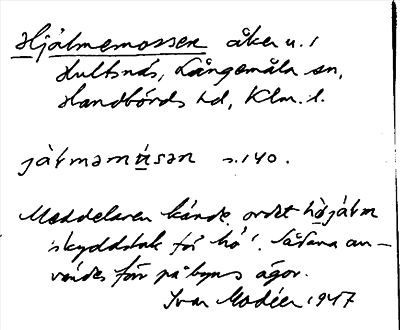 Hjälmemossen åker u. 1
Hultsnäs, Långemåla sn,
Handbörds hd, Klm. l.
jälməmúsən s. 140.
Meddelaren kände ordet höjälm
'skyddstak för hö'. Sådana an-
vändes förr på byns ägor.
Ivar Modéer 1947